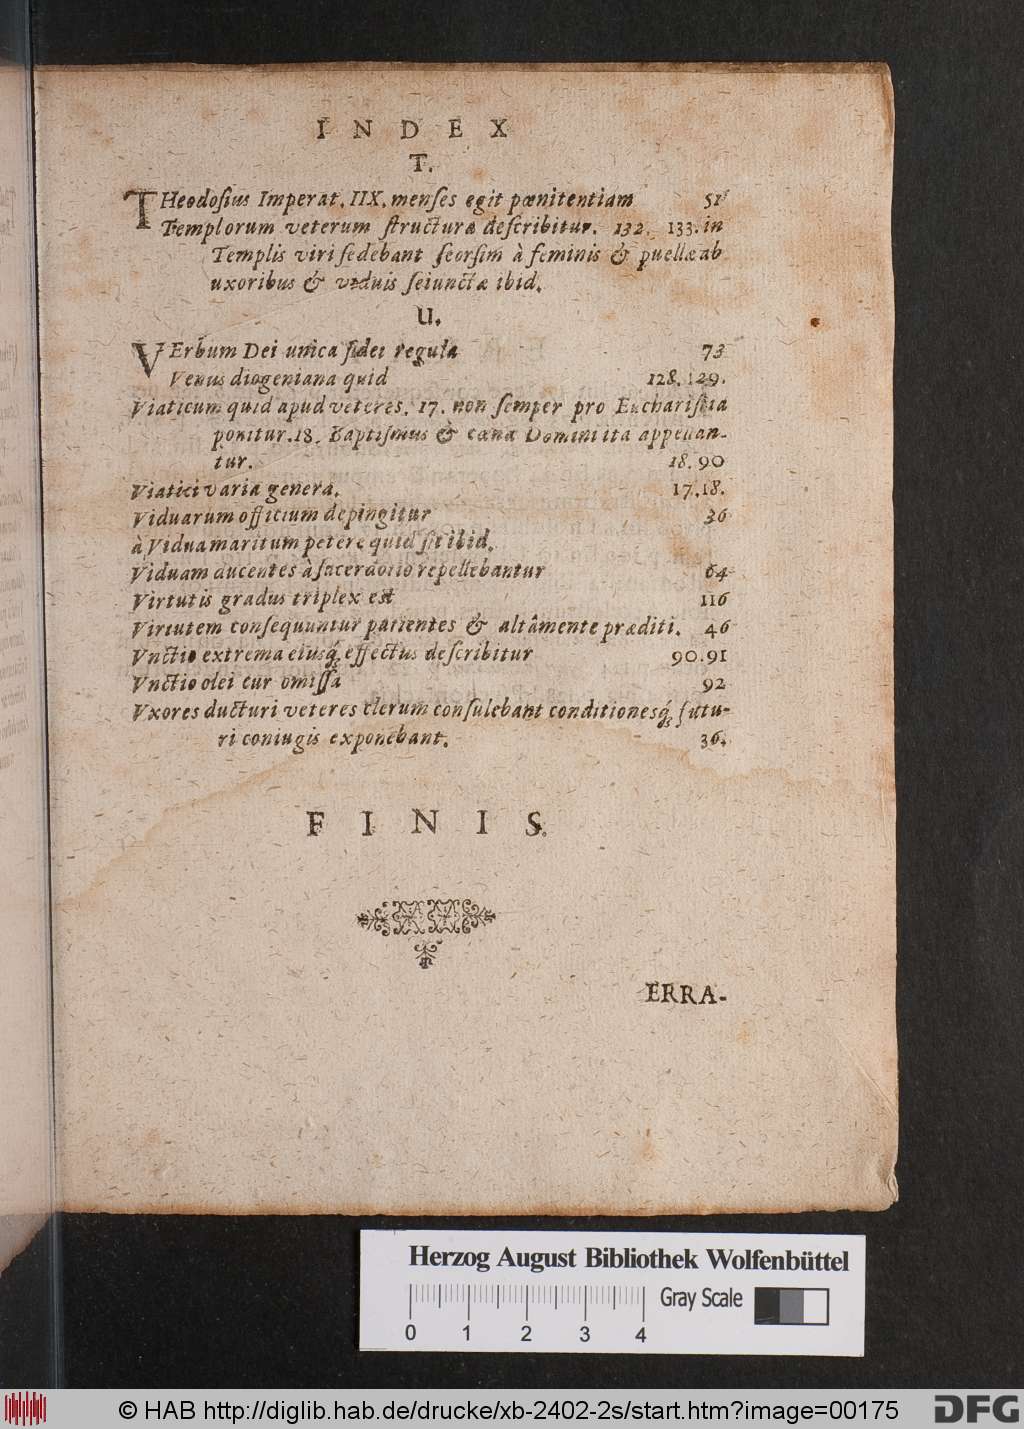 INDEX
T.
THeodoſius Imperat. IIX. menſes egit pœnitentiam 51
Templorum veterum ſtructura deſcribitur. 132. 133. in
Templis viri ſedebant ſeorſim à feminis & puellæ ab
uxoribus & viduis ſeiunctæ ibid.
U.
VErbum Dei unica fidei regula 73
Venus diogeniana quid 128. 129.
Viaticum quid apud veteres. 17. non ſemper pro Euchariſtia
ponitur. 18. Baptiſmus & cœna Domini ita appellan-
tur. 18. 90
Viatici varia genera. 17. 18.
Viduarum officium depingitur 36
à Vidua maritum petere quid ſit ibid.
Viduam ducentes à ſacerdotio repellebantur 64
Virtutis gradus triplex est 116
Virtutem conſequuntur patientes & altâ mente præditi. 46
Vnctio extrema eiusq́; effectus deſcribitur 90. 91
Vnctio olei cur omiſſa 92
Vxores ducturi veteres clerum conſulebant conditionesq́; futu-
ri coniugis exponebant. 36.
FINIS.
ERRA-
Herzog August Bibliothek Wolfenbüttel
Gray Scale
0 1 2 3 4
© HAB http://diglib.hab.de/drucke/xb-2402-2s/start.htm?image=00175
DFG